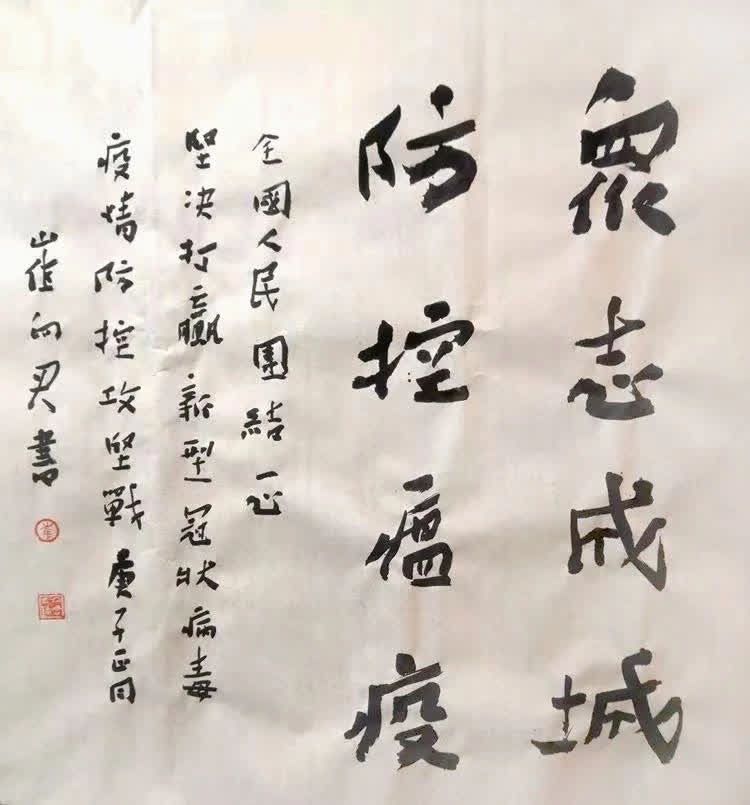 眾志成城
防控瘟疫
全國人民團結一心
堅决打贏新型冠狀病毒
疫情防控攻堅戰 庚子正月
崔向君書
崔